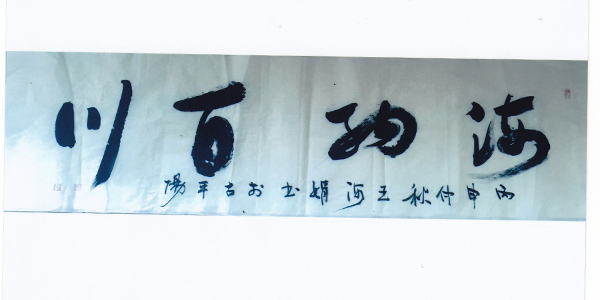 海纳百川
丙申仲秋王海娟书于古平阳